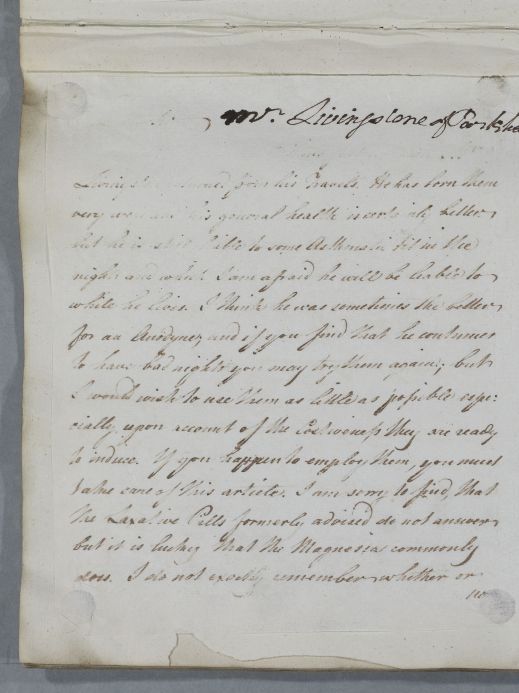 Mr. Livingstone of Parksha
Livingstone returned from his Travels. He has born them
very well and his general health is certainly better,
but he is still liable to some Asthmatic fit in the
night and which I am afraid he will be liable to
while he lives. I think he was sometimes the better
for an Anodyne, and if you find that he continues
to have bad nights you may try them again; but
I would wish to use them as little as possible espe:
cially upon account of the Costiveness they are ready
to induce. If you happen to employ them, you must
take care of this article. I am sorry to find, that
the Laxative Pills formerly advised do not answer,
but it is lucky that the Magnesia commonly
does. I do not exactly remember whether or
no